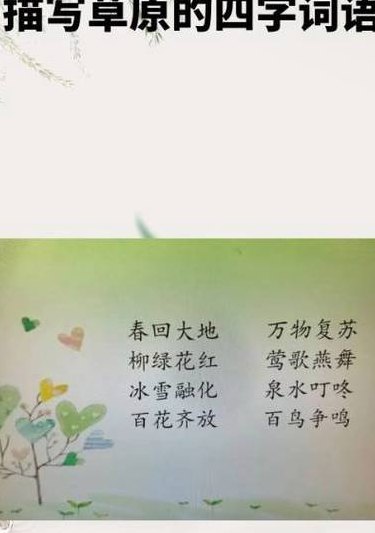 描写草原的四字词语
春回大地 万物复苏
柳绿花红 莺歌燕舞
冰雪融化 泉水叮咚
百花齐放 百鸟争鸣